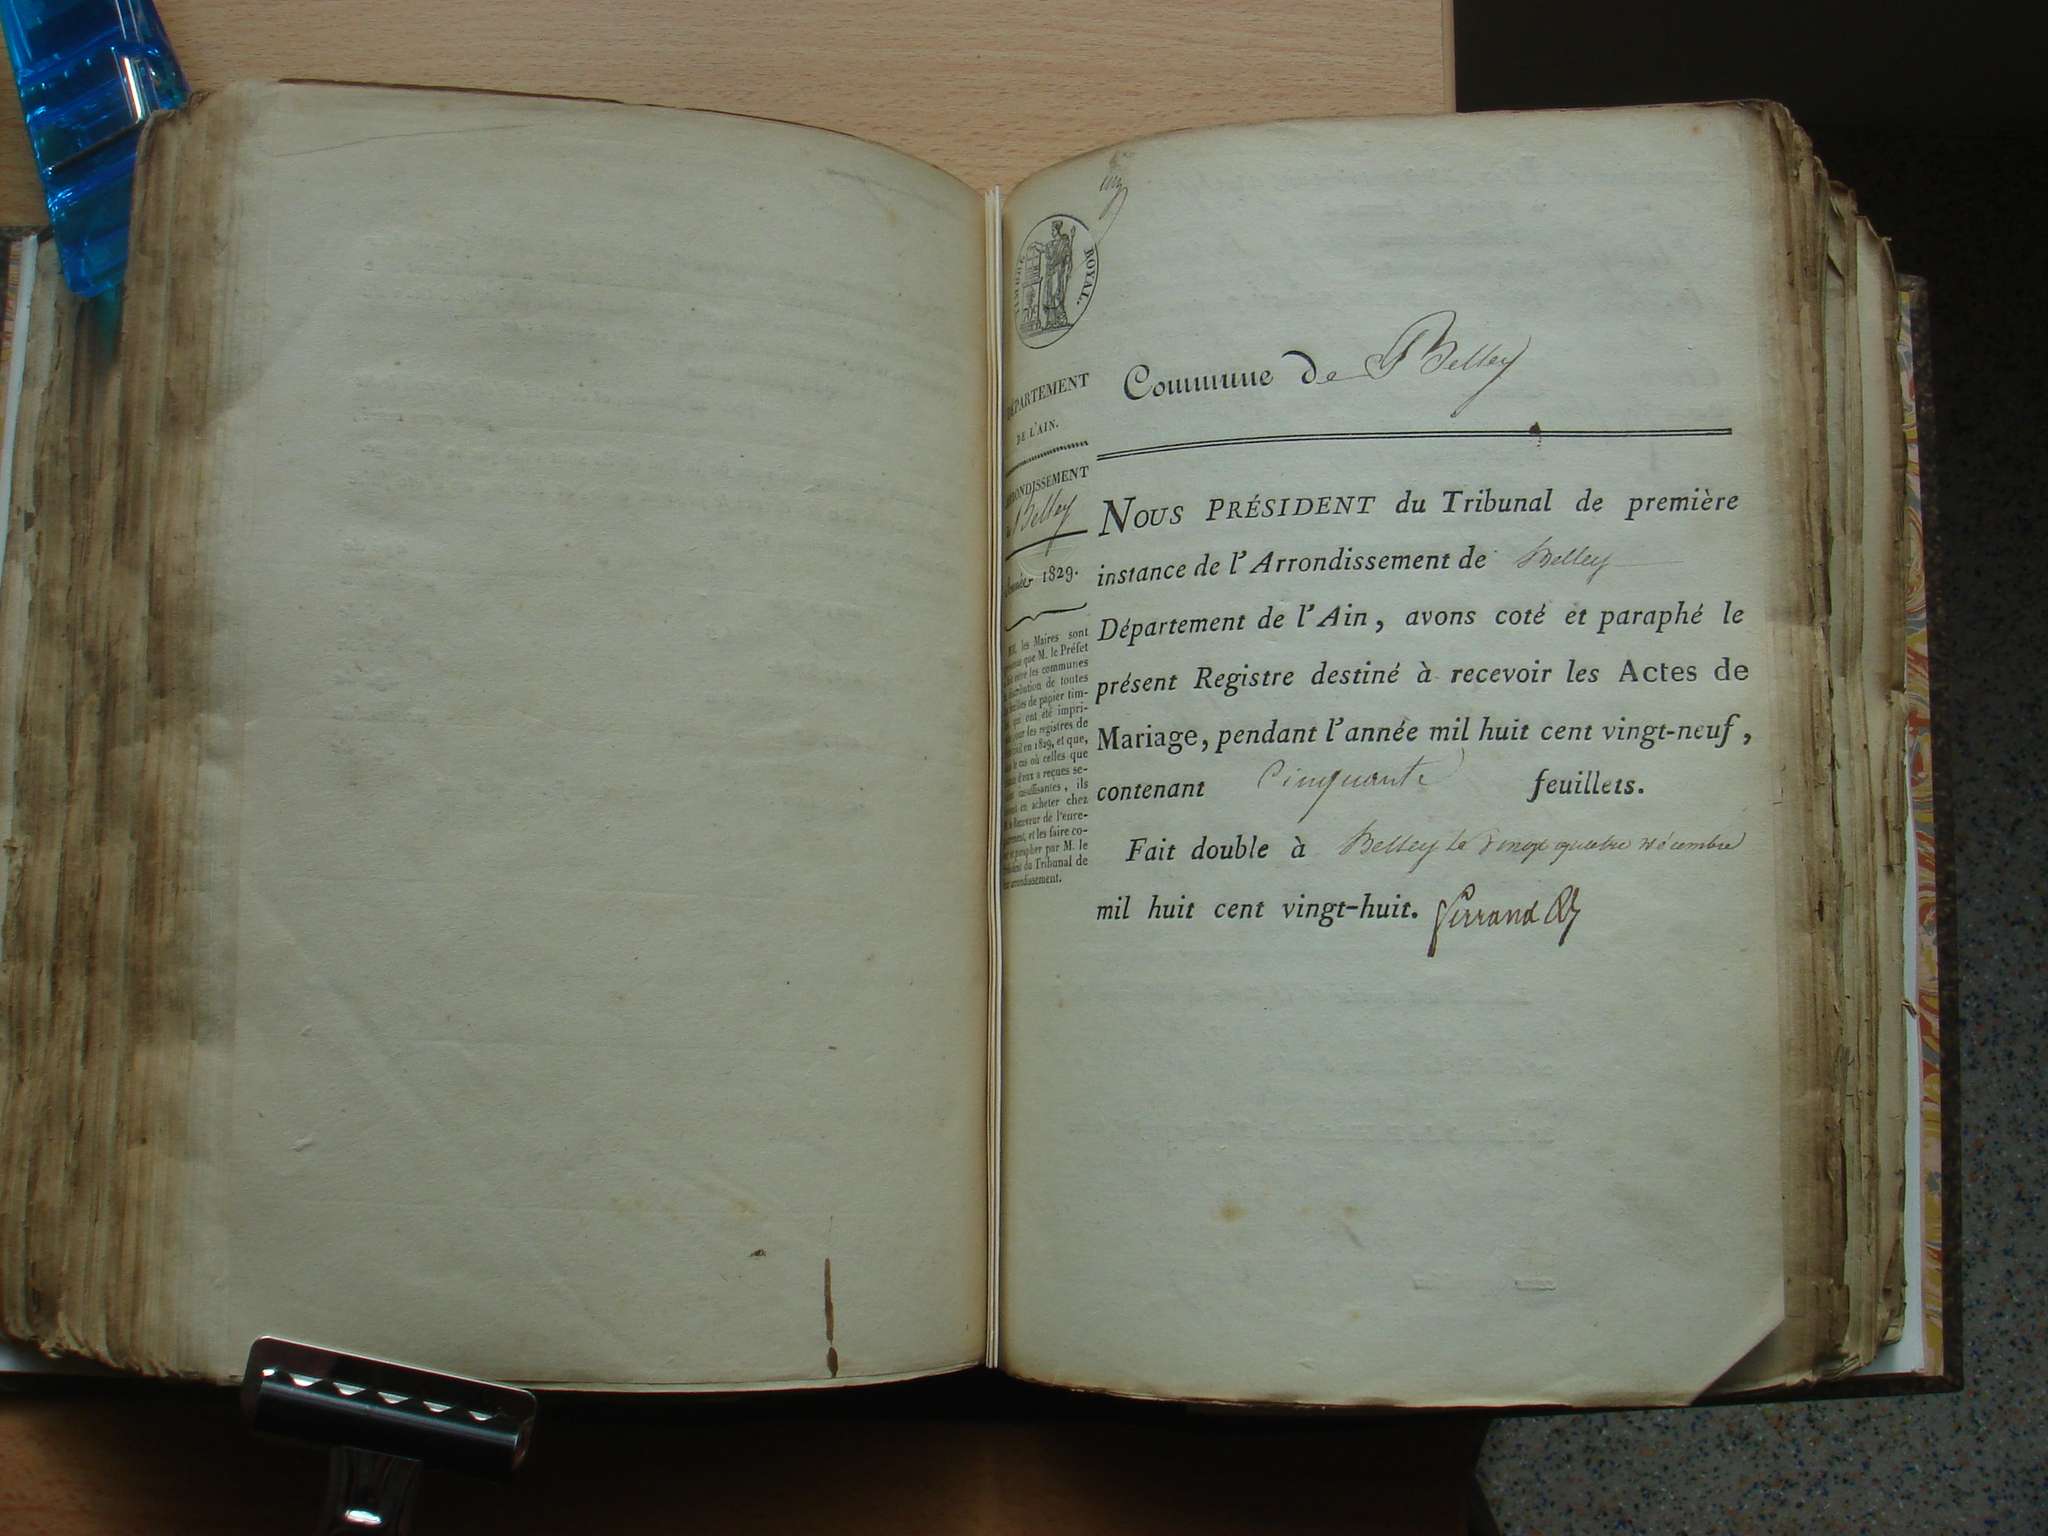 TIMBRE ROYAL.
DÉPARTEMENT
DE L'AIN.
ARRONDISSEMENT
Belley
Année 1829.
les Maires sont
que M. le Préfet
entre les communes
distribution de toutes
feuilles de papier tim-
qui ont été impri-
pour les registres de
en 1829, et que,
le cas où celles que
d'eux a reçues se-
insuffisantes, ils
en acheter chez
Receveur de l'enre-
et les faire co-
parapher par M. le
du Tribunal de
arrondissement.
Commune de Belley
NOUS PRÉSIDENT du Tribunal de première
instance de l'Arrondissement de Belley
Département de l'Ain, avons coté et paraphé le
présent Registre destiné à recevoir les Actes de
Mariage, pendant l'année mil huit cent vingt-neuf,
contenant Cinquante feuillets.
Fait double à Belley le vingt quatre décembre
mil huit cent vingt-huit.